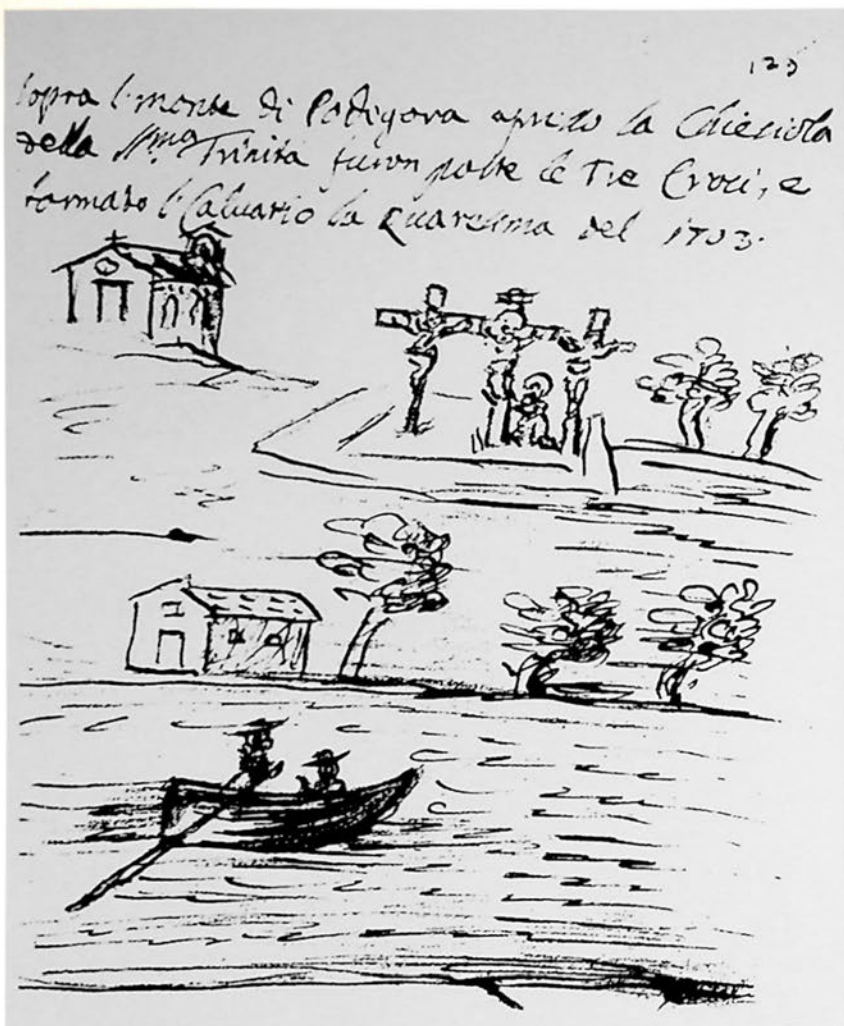 123
sopra l'monte di Podigora apresso la Chiesiola
della SSma Trinità furon poste le Tre Croci, e
formato l'Caluario la Quaresima del 1703.